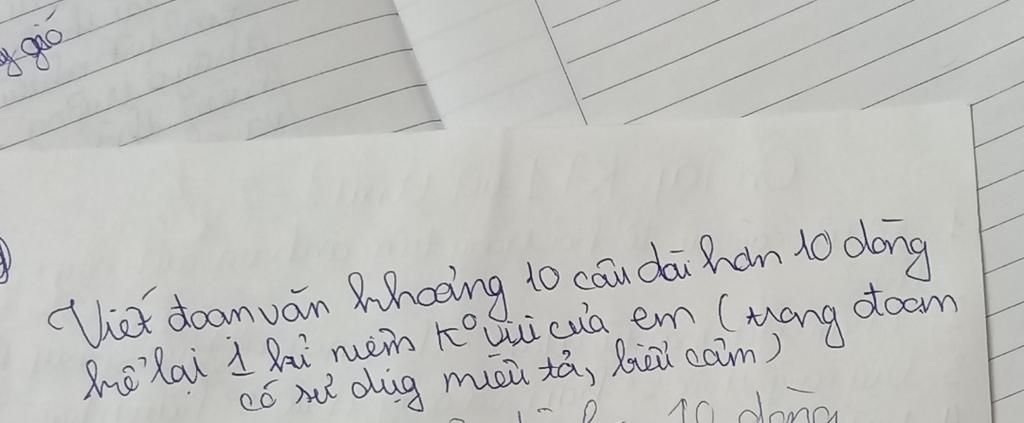 gió
Viết đoạn văn khoảng 10 câu dài hơn 10 dòng
kể lại 1 kỉ niệm k° vui của em (trong đoạn
có sử dụg miêu tả, biểu cảm)
10 dòng